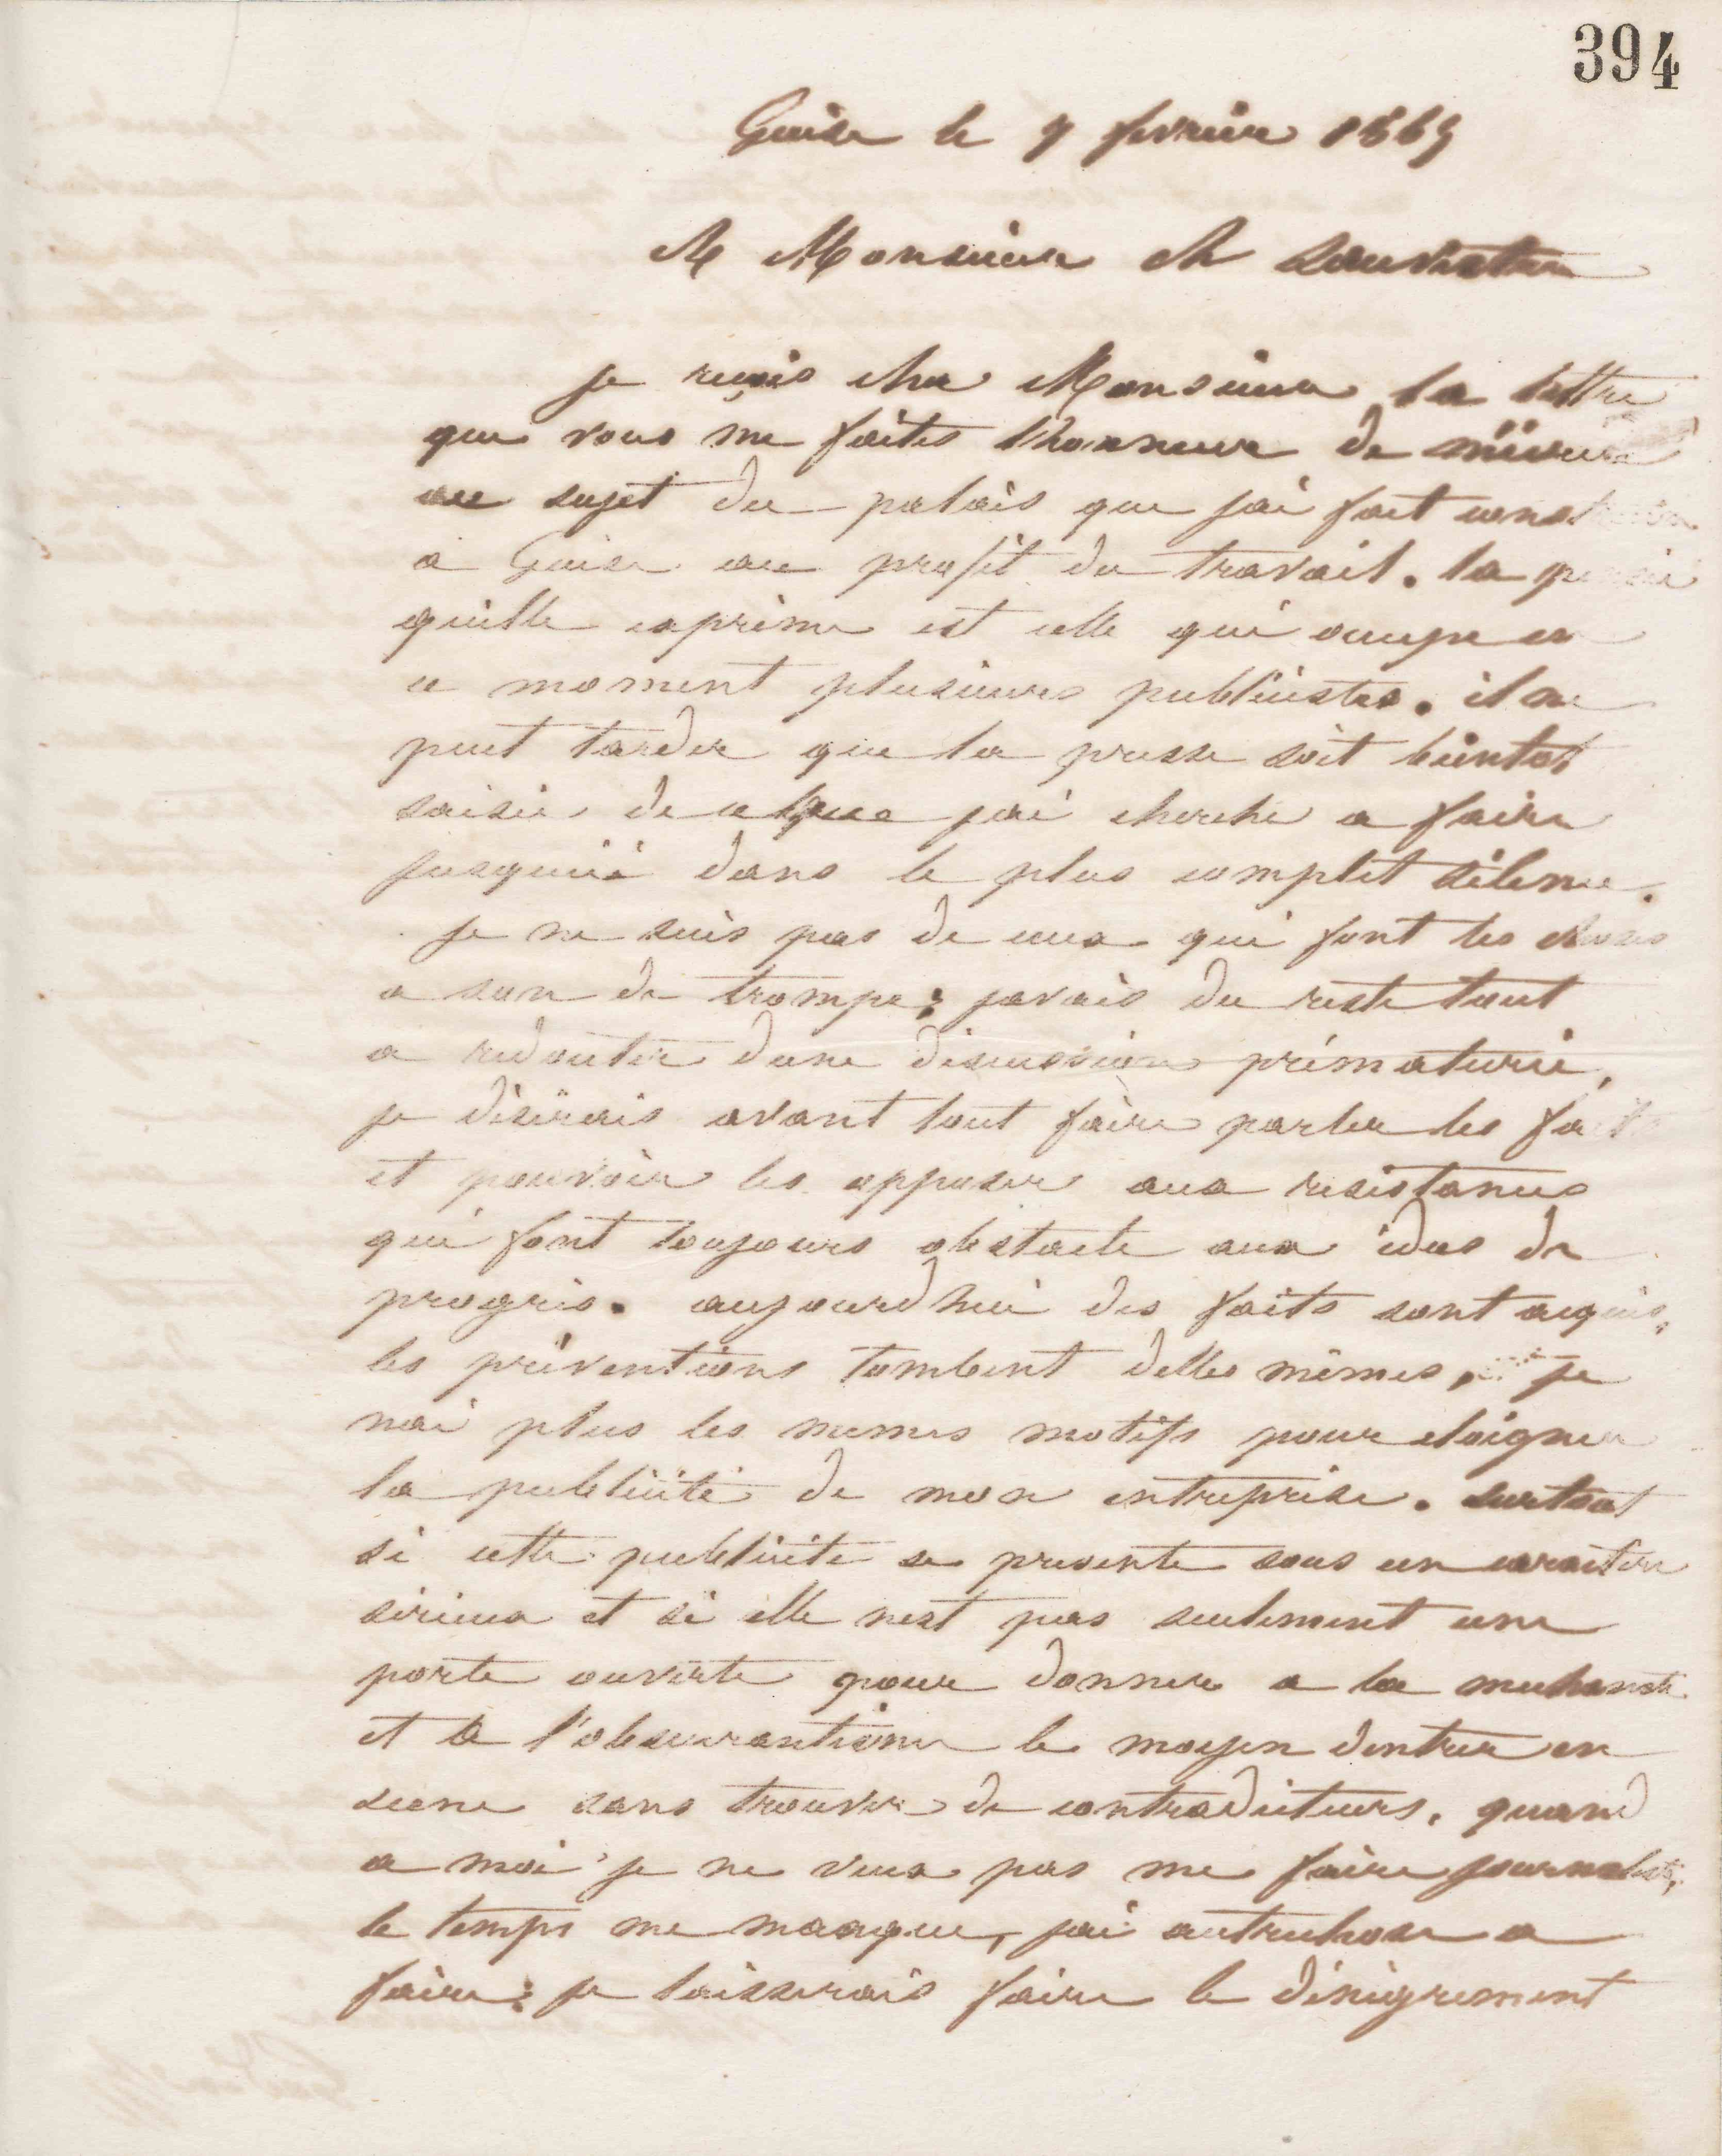 394
Guise le 9 fevrier 1865
A Monsieur Ch Sauvestre
je reçois cher Monsieur la lettre
que vous me faites lhonneur de mécrire
au sujet du palais que jai fait construire
a Guise au profit du travail. la pensée
quelle exprime est celle qui occupe en
ce moment plusieurs publicistes. il ne
peut tarder que la presse soit bientot
saisie de ce que jai cherché a faire
jusquici dans le plus complet silence.
je ne suis pas de ceux qui font les choses
a son de trompe; javais du reste tout
a redouter dune discussion prématurée,
je désirais avant tout faire parler les faits
et pouvoir les opposer aux resistances
qui font toujours obstacle aux idees de
progrès. aujourdhui des faits sont acquis,
les préventions tombent delles mêmes, je
nai plus les memes motifs pour eloigner
la publicité de mon entreprise. surtout
si cette publicité se presente sous un caractere
serieux et si elle nest pas seulement une
porte ouverte pour donner a la mechanceté
et a l'obscurantisme le moyen dentrer en
scene sans trouver de contradicteurs. quand
a moi je ne veux pas me faire journaliste,
le temps me manque, jai autrechose a
faire; je laisserais faire le dénigrement